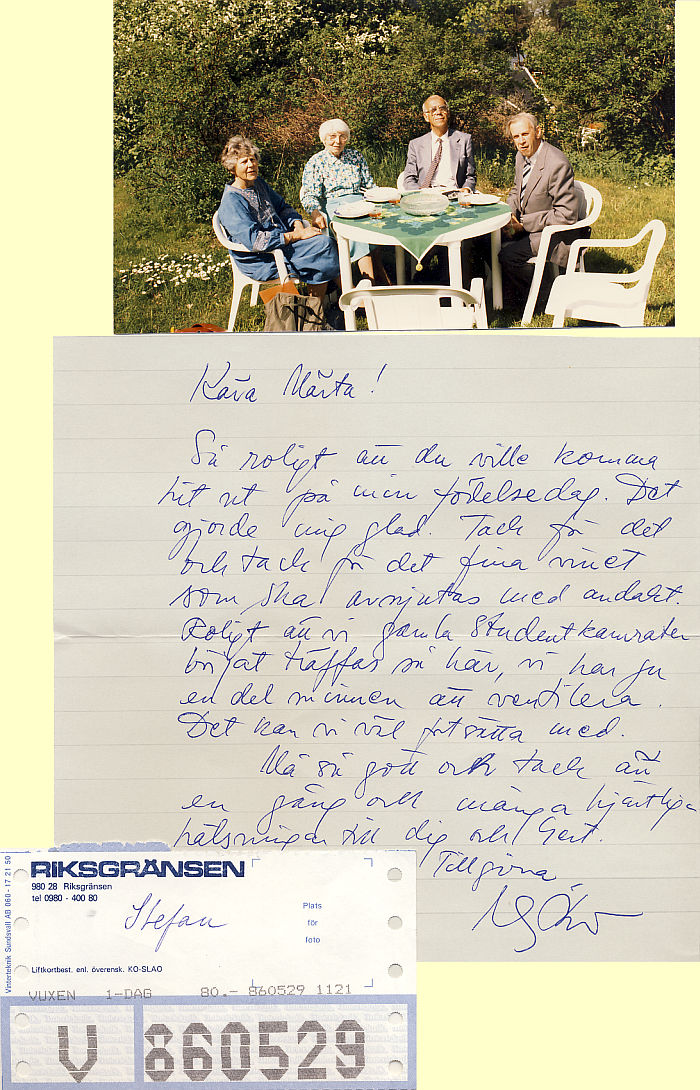 Kära Märta!
Så roligt att du ville komma
hit ut på min födelsedag. Det
gjorde mig glad. Tack för det
och tack för det fina vinet
som ska avnjutas med andakt.
Roligt att vi gamla Studentkamrater
börjat träffas så här, vi har ju
en del minnen att ventilera.
Det kan vi väl fortsätta med.
Må så gott och tack än
en gång och många hjärtliga
hälsningar till dig och Gert.
Tillgivna
RIKSGRÄNSEN
980 28 Riksgränsen
tel 0980 - 400 80
Stefan
Plats
för
foto
Liftkortbest. enl. överensk. KO-SLAO
VUXEN 1-DAG 80.- 860529 1121
V 860529
Vinterteknik Sundsvall AB 060-17 21 50